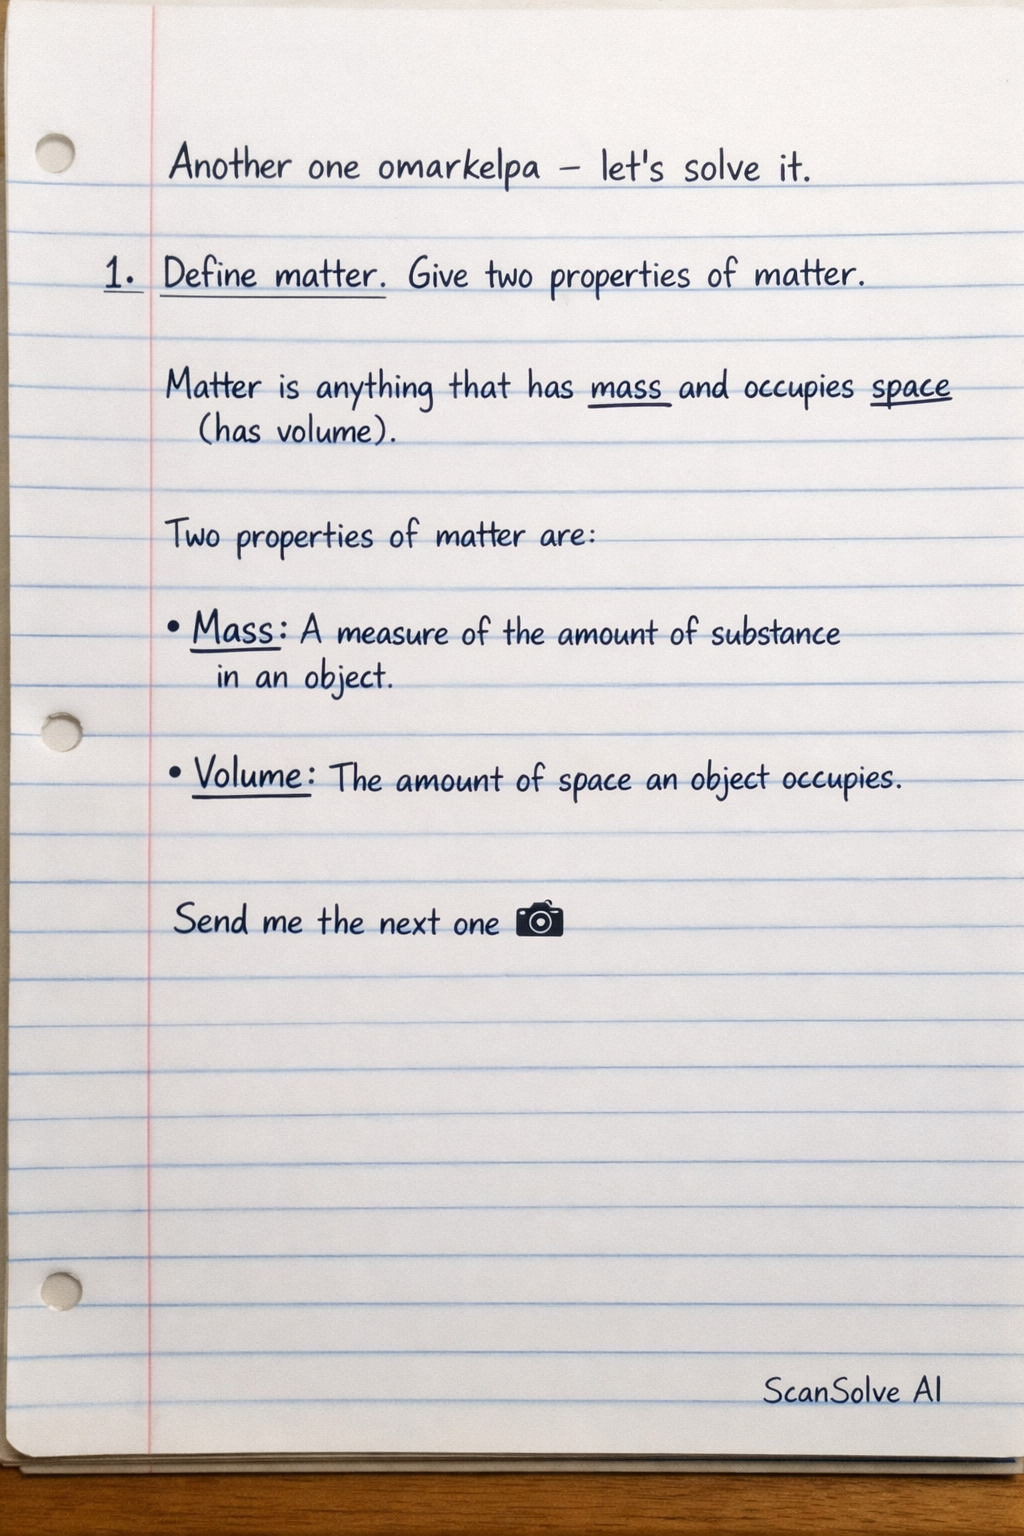 Another one omarkelpa – let's solve it.
1. Define matter. Give two properties of matter.
Matter is anything that has mass and occupies space
(has volume).
Two properties of matter are:
• Mass: A measure of the amount of substance
in an object.
• Volume: The amount of space an object occupies.
Send me the next one 📷
ScanSolve AI